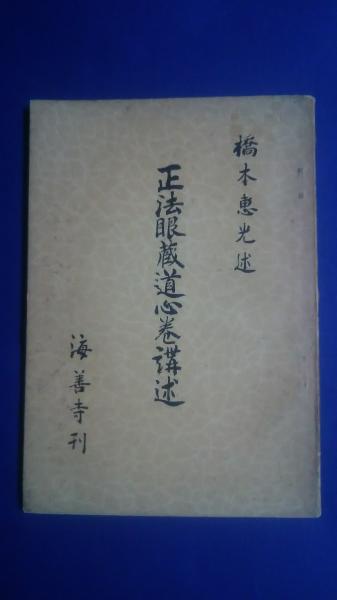 橋本恵光述
正法眼蔵道心巻講述
海善寺刊